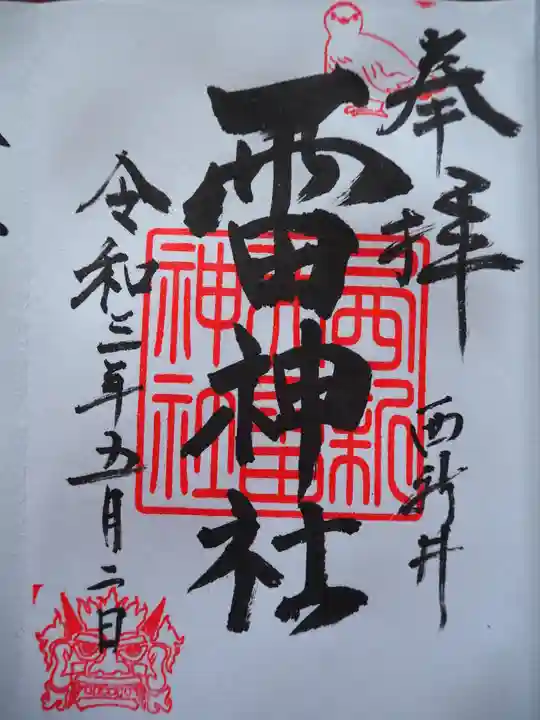 奉拝
西新井
雷神社
令和三年五月二日
西新
井雷
神社